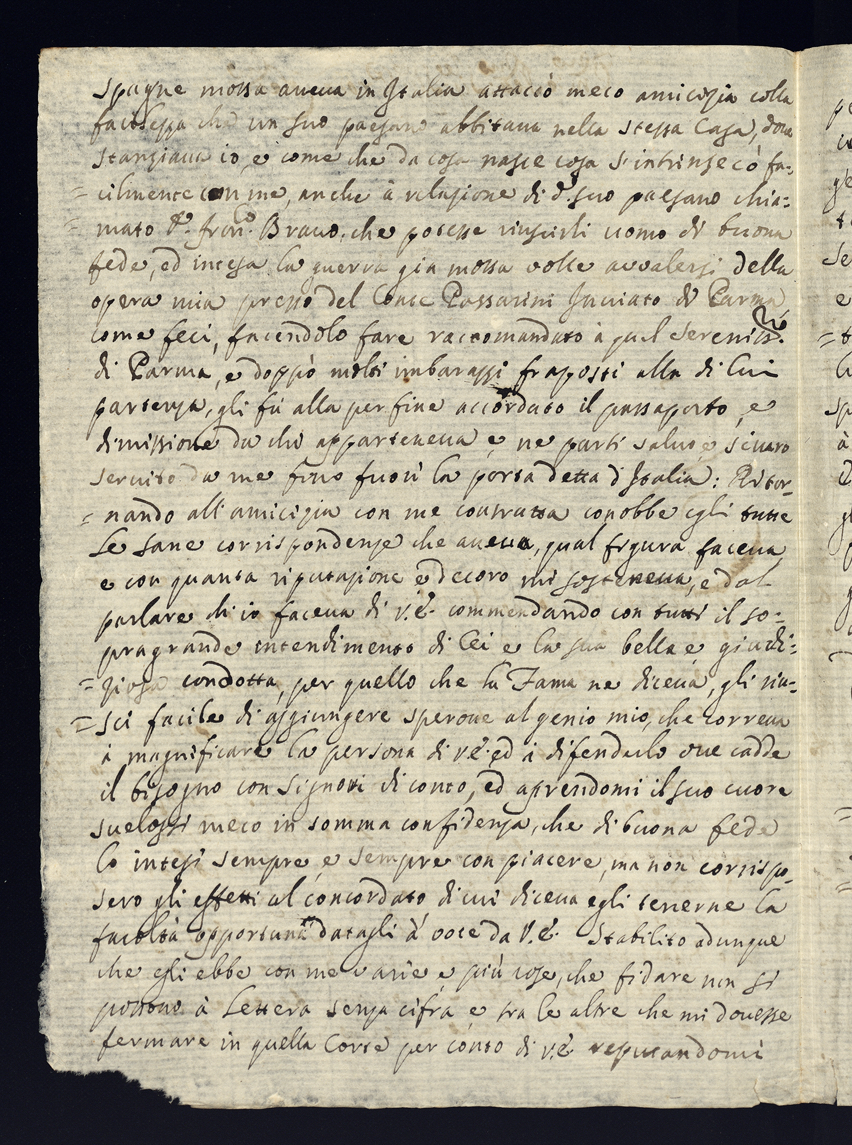 Spagne mossa aveva in Italia attaccò meco amicizia colla
facilezza che un suo paesano abbitava nella stessa Casa, dove
stanziava io, e come che da cosa nasce cosa s'intrinsecò fa-
= cilmente con me, anche à relazione di d.º suo paesano chia=
= mato D. Fran.º Bravo, che potesse riuscirli uomo di buona
fede, ed intesa la guerra gia mossa volle avvalersi della
opera mia presso del Conte Passarini Inviato di Parma,
come feci, facendolo fare raccomandato à quel Sereniss.º
di Parma, e doppò molti imbarazzi fraposti alla di lui
partenza, gli fú alla per fine accordato il passaporto, e
dimissione da chi apparteneva, e ne partì salvo, e sicuro
servito da me fino fuori la porta detta d'Italia: Ritor-
= nando all'amicizia con me contratta conobbe egli tutte
le sane corrispondenze che aveva, qual figura faceva
e con quanta riputazione e decoro mi sosteneva, e dal
parlare ch'io faceva di V.E. commendando con tutti il so-
pragrande intendimento di Lei e la sua bella e giudi=
= ziosa condotta, per quello che la Fama ne diceva, gli riu=
= sci facile di aggiungere sperone al genio mio, che correva
à magnificare la persona di V.E. ed à difenderlo ove cadde
il bisogno con Signori di conto, ed aprendomi il suo cuore
svelossi meco in somma confidenza, che di buona fede
lo intesi sempre, e sempre con piacere, ma non corrispo-
sero gli effetti al concordato di cui diceva egli tenerne la
facoltà opportuna datagli à voce da V.E. Stabilito adunque
che egli ebbe con me varie e più cose, che fidare non si
possono à Lettera senza cifra, e tra le altre che mi dovesse
fermare in quella Corte per conto di V.E. reputandomi